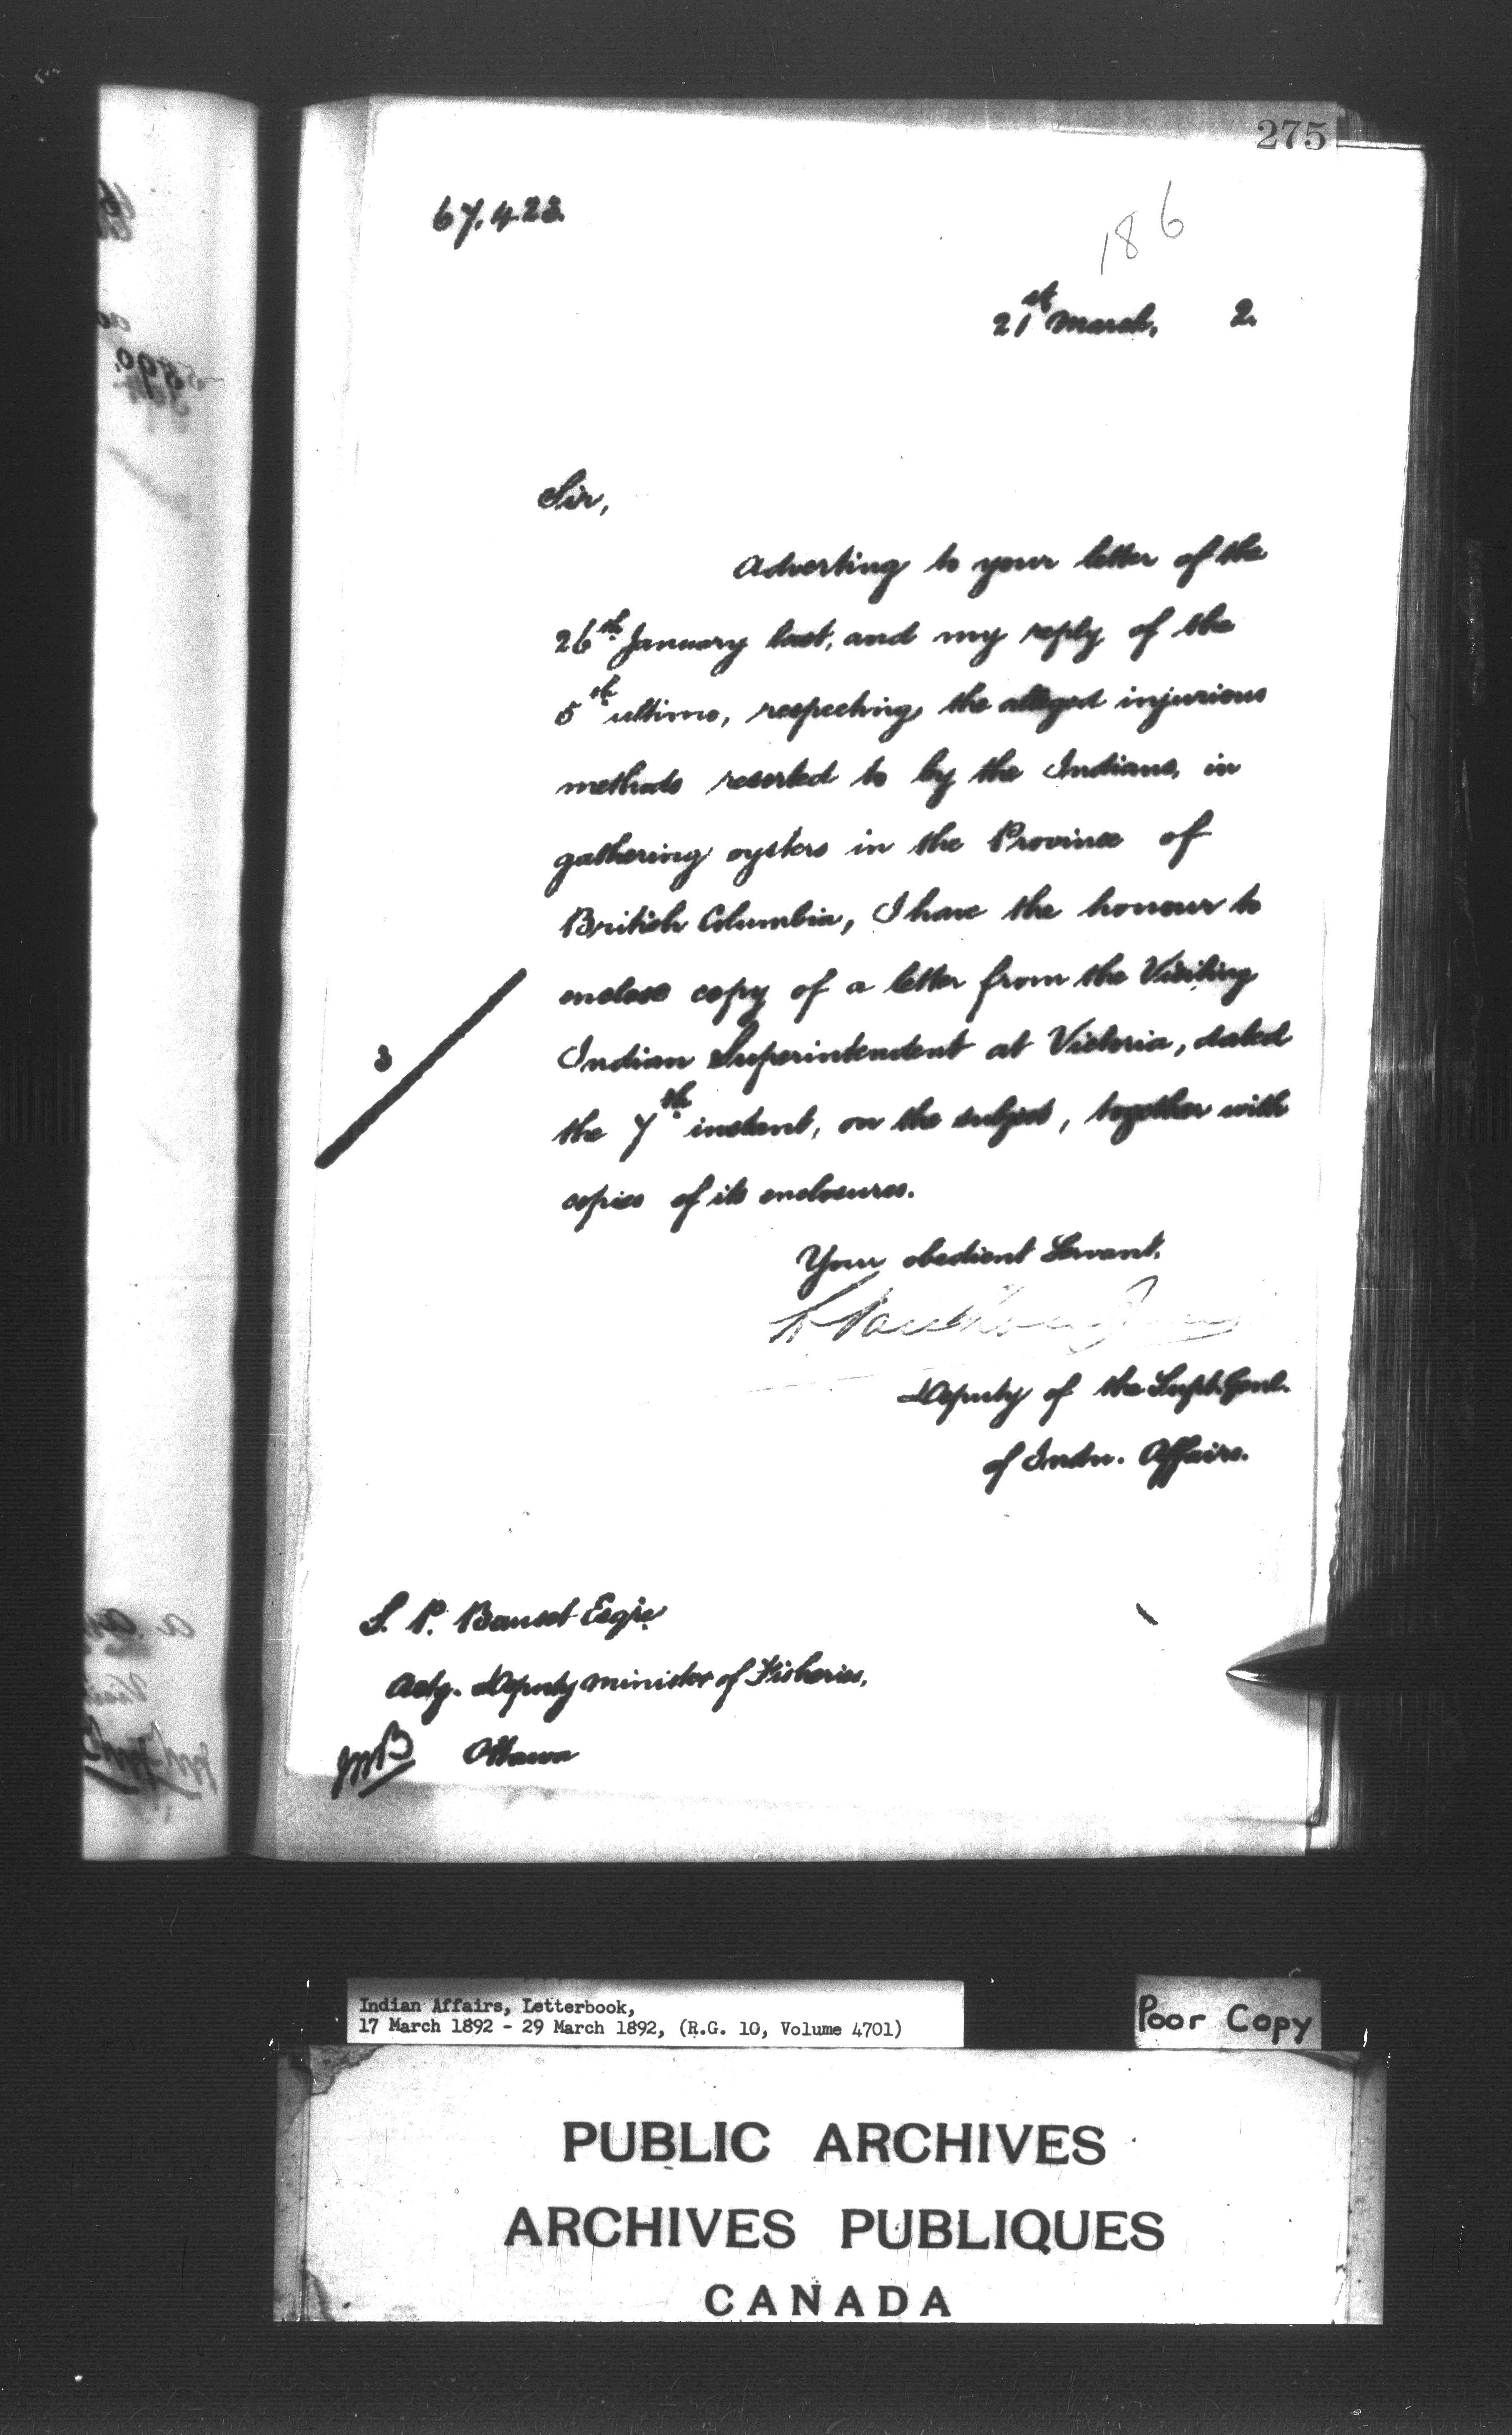 275
67.423.
186
21st March, 2.
Sir,
Adverting to your letter of the
26th January last, and my reply of the
5th ultimo, respecting the alleged injurious
methods resorted to by the Indians, in
gathering oysters in the Province of
British Columbia, I have the honour to
enclose copy of a letter from the Visiting
3
Indian Superintendent at Victoria, dated
the 7th instant, on the subject, together with
copies of its enclosures.
Your obedient Servant.
L Vankoughnet
Deputy of the Supt. Genl.
of Indn. Affairs.
S. P. Bauset Esqre
Actg. Deputy Minister of Fisheries,
Ottawa
Indian Affairs, Letterbook,
17 March 1892 - 29 March 1892, (R.G. 10, Volume 4701)
Poor Copy
PUBLIC ARCHIVES
ARCHIVES PUBLIQUES
CANADA